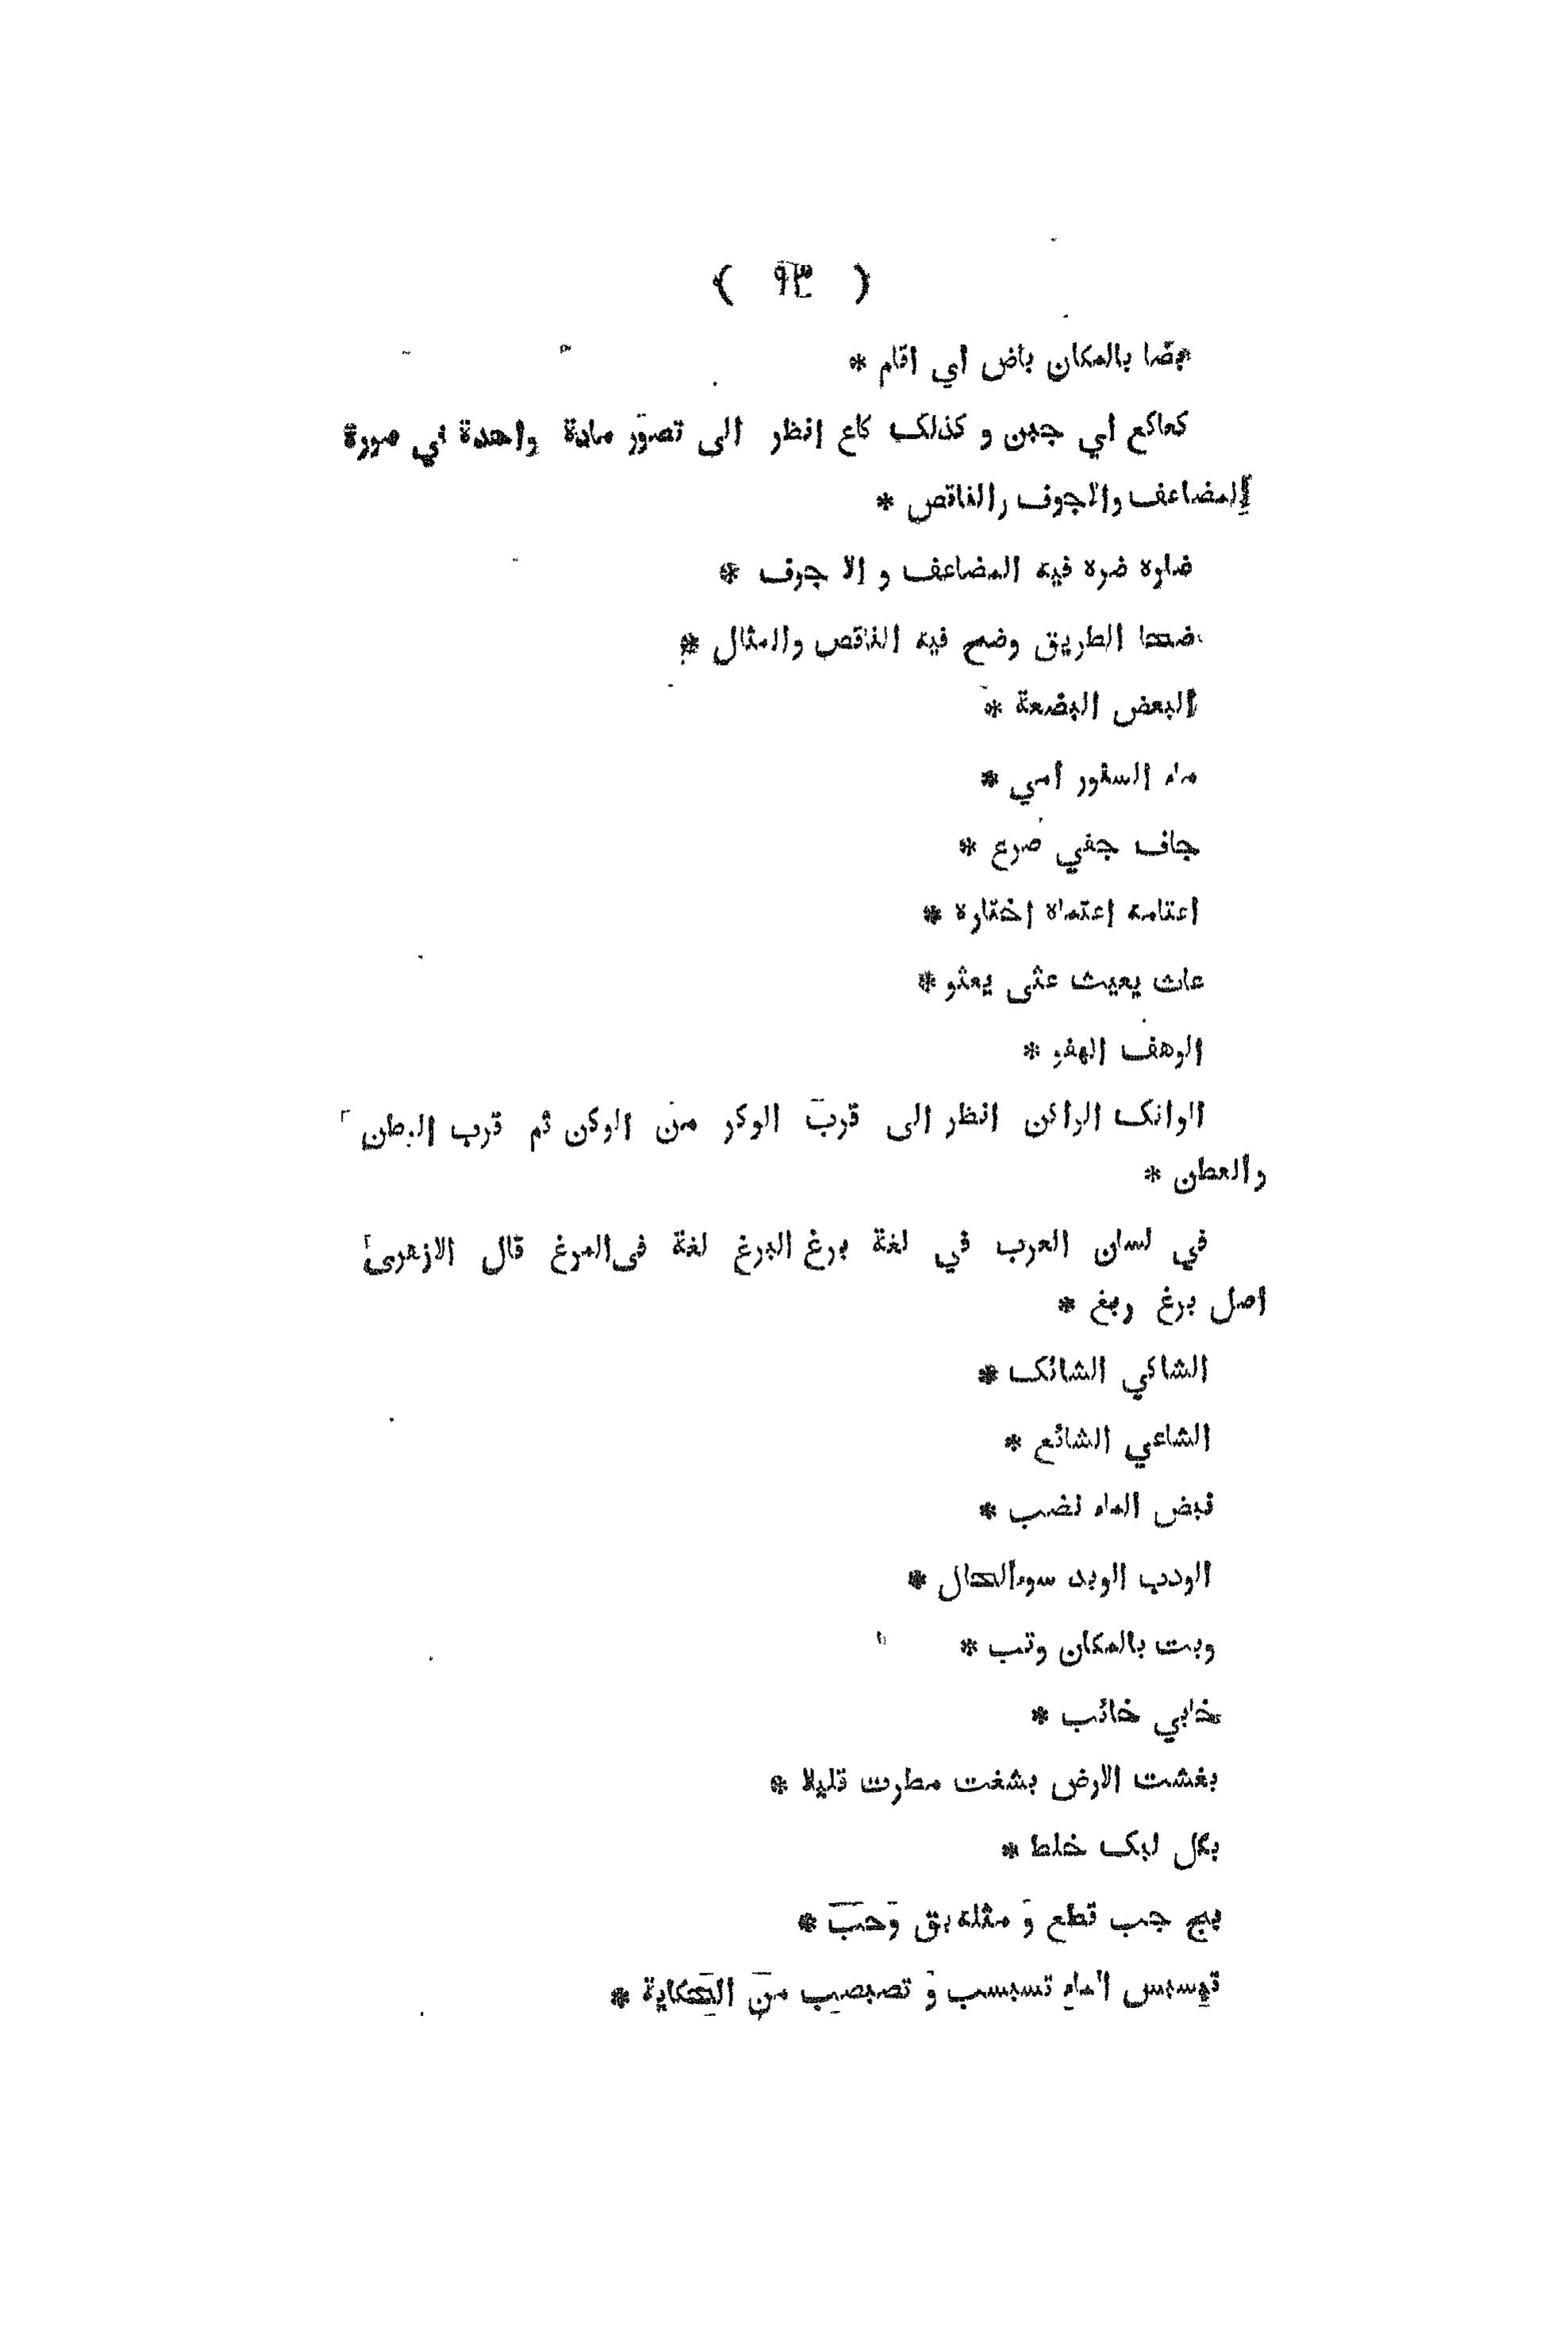 ( ٩٣ )
بضا بالمكان باض أي اقام *
كعاكع أي جبن و كذلك كاع انظر الى تصور مادة واحدة في صورة
المضاعف والاجوف والناقص *
ضاره ضره فيه المضاعف و الا جوف *
ضحا الطريق وضح فيه الناقص والمثال *
البعض البضعة *
ماء السنور أمي *
جاف جفي صرع *
اعتامه اعتماه اختاره *
عاث يعيث عثى يعثو *
الوهف الهفو *
الوانك الواكن انظر الى قرب الوكر من الوكن ثم قرب البطن
والعطن *
في لسان العرب في لغة برغ البرغ لغة فى المرغ قال الازهرى
اصل برغ ربغ *
الشاكي الشائك *
الشاعي الشائع *
نبض الماء نضب *
الودب الوبد سوء الحال *
وبت بالمكان وتب *
خابي خائب *
بغشت الارض بشغت مطرت قليلا *
بكل لبك خلط *
بج جب قطع و مثله بق وحب *
تبسبس الماء تسبسب و تصبصب من الحكاية *